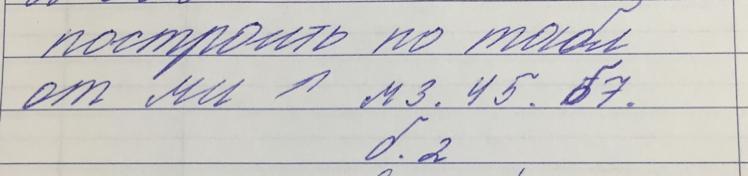 построить по табл
от ми ↑ м3. ч5. б7.
б.2